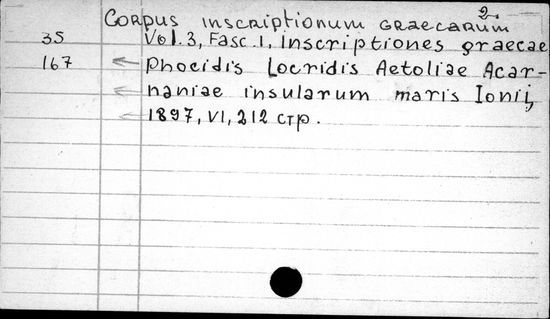 2.
Corpus inscriptionum graecarum
35 Vol. 3, Fasc. 1, Inscriptiones graecae
167 Phocidis Locridis Aetoliae Acar-
naniae insularum maris Ionii,
1897, VI, 212 стр.